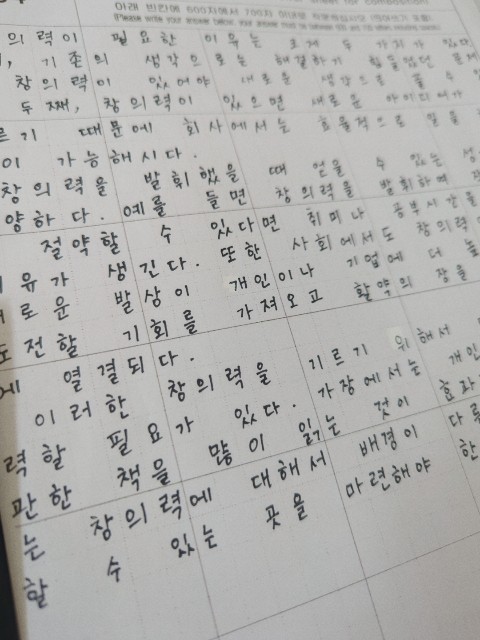 아래 빈칸에 600자에서 700자 이내로
(Please write your answer below; your answer must be between 600 and 700
의력이 필요한 이유는 크게 두 가지가 있다
기존의 생각으로는 해결하기 힘들었던 문제
창의력이 있어야 새로운 생각으로 풀 수
두째, 창의력이 있으면 새로운 아이디어가
르기 때문에 회사에서는 효율적으로 일을
이 가능해시다.
창의력을 발휘했을 때 얻을 수 있는 성
양하다. 예를 들면 창의력을 발휘하며
절약할 수 있다면 취미나 공부시간을
유가 생긴다. 또한 사회에서도 창의력이
로운 발상이 개인이나 기업에 더
도전할 기회를 가져오고 활약의 장을
에 열결되다.
이러한 창의력을 기르기 위해서
력할 필요가 있다. 가장에서는 개인
관한 책을 많이 읽는 것이 효과
는 창의력에 대해서 배경이 다른
할 수 있는 곳을 마련해야 한